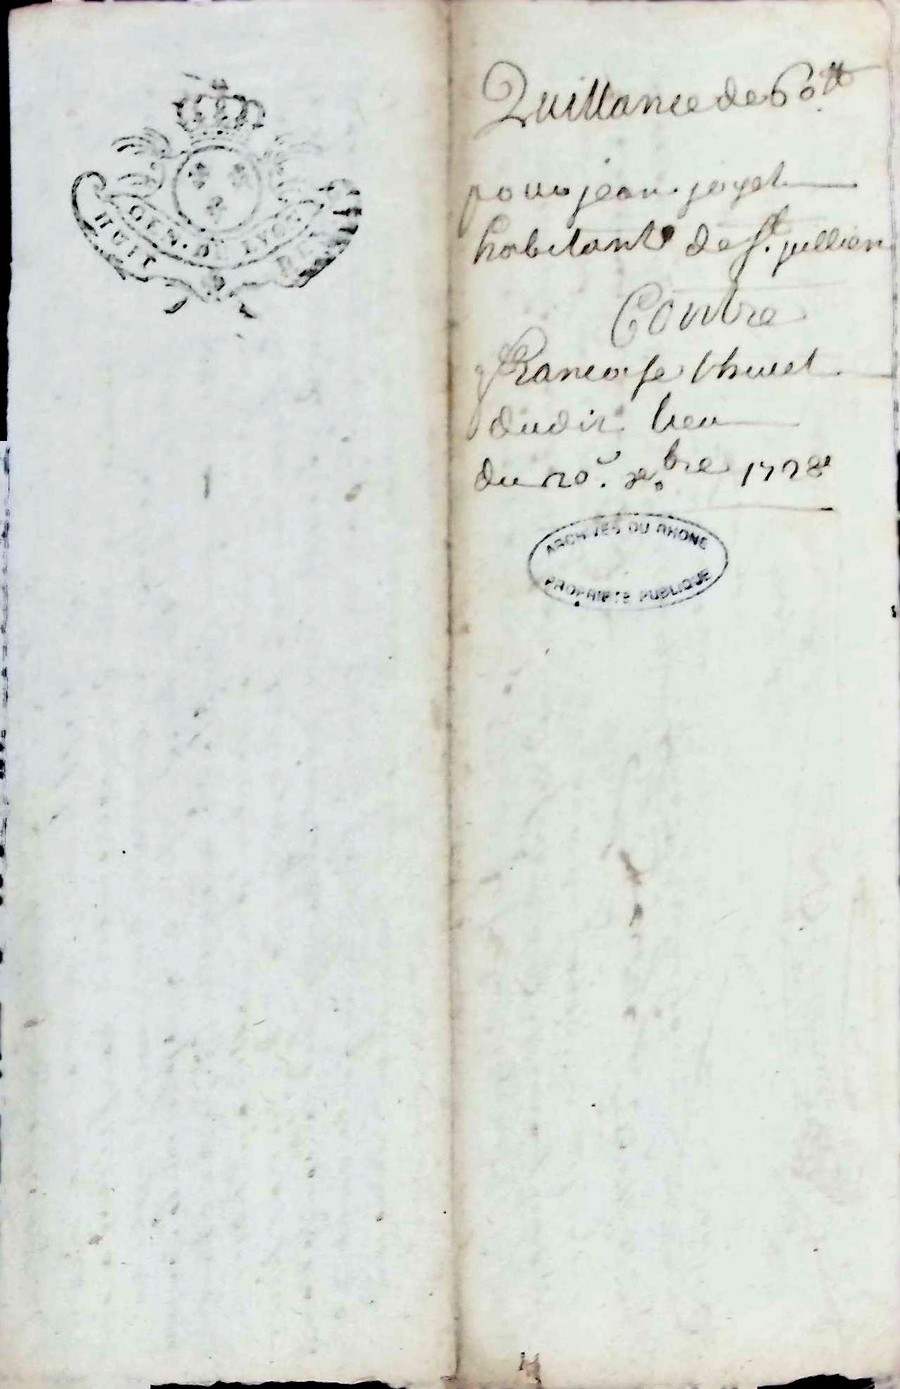 GEN. DE LYON
HUIT DEN
Quittance de 60.tt
pour jean joyet
habitant de st. jullien
Contre
francoise thivel
dudit lieu
du 20. xe.bre 1728
ARCHIVES DU RHONE
PROPRIETE PUBLIQUE